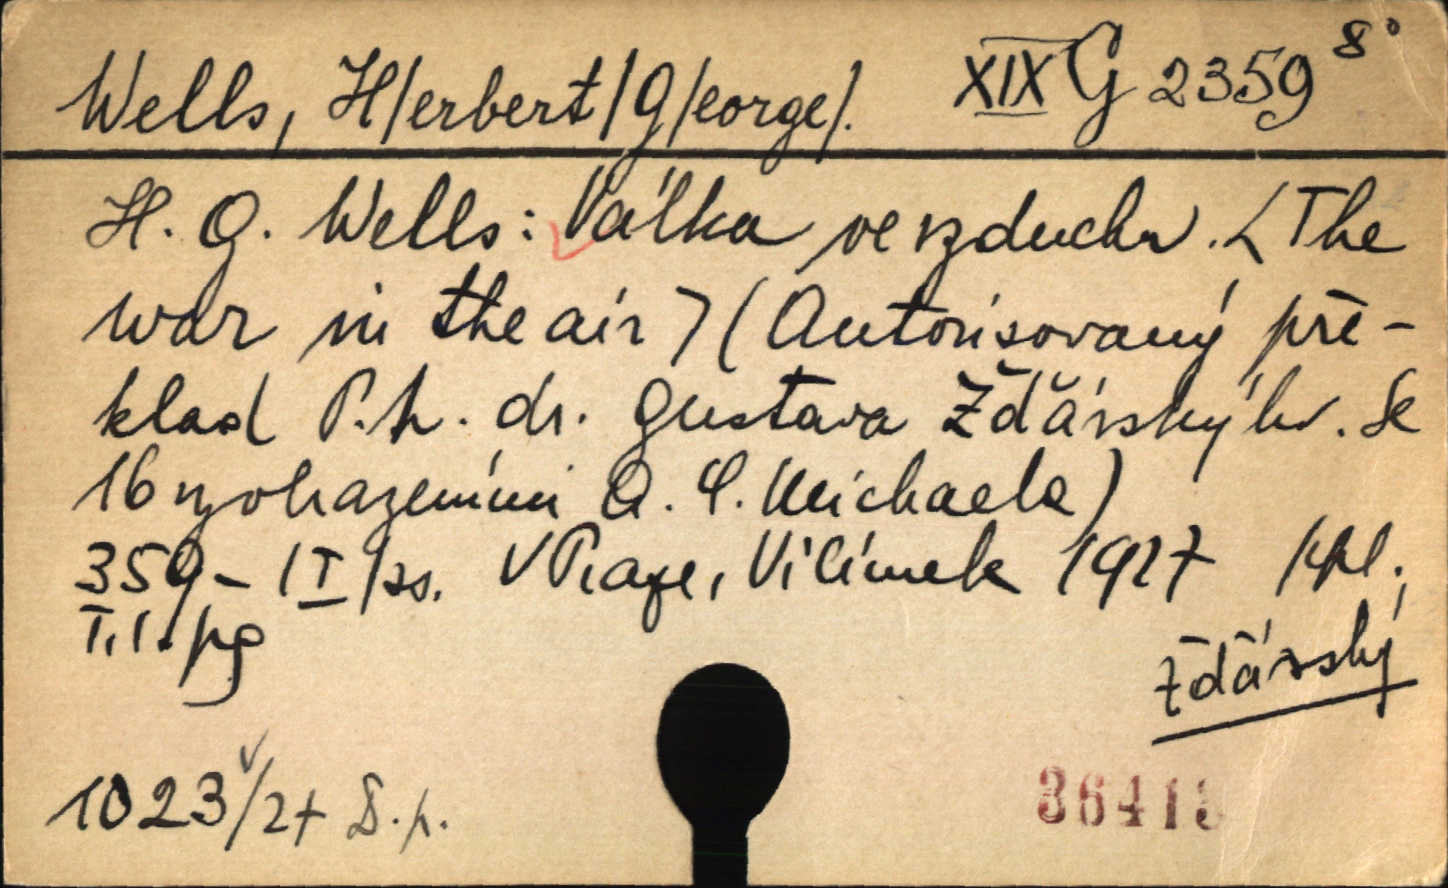 Wells, H/erbert/G/eorge/. XIX G 2359 8°
H. G. Wells: Válka ve vzduchu. <The
war in the air> (Autorisovaný pře-
klad P.h. dr. Gustava Žďárskýho. Se
16 vyobrazeními A. C. Michaela)
359 - /I/ ss. V Praze, Vilímek 1927 kpl.
T.l. pg
Žďárský
1023/27 D.p.